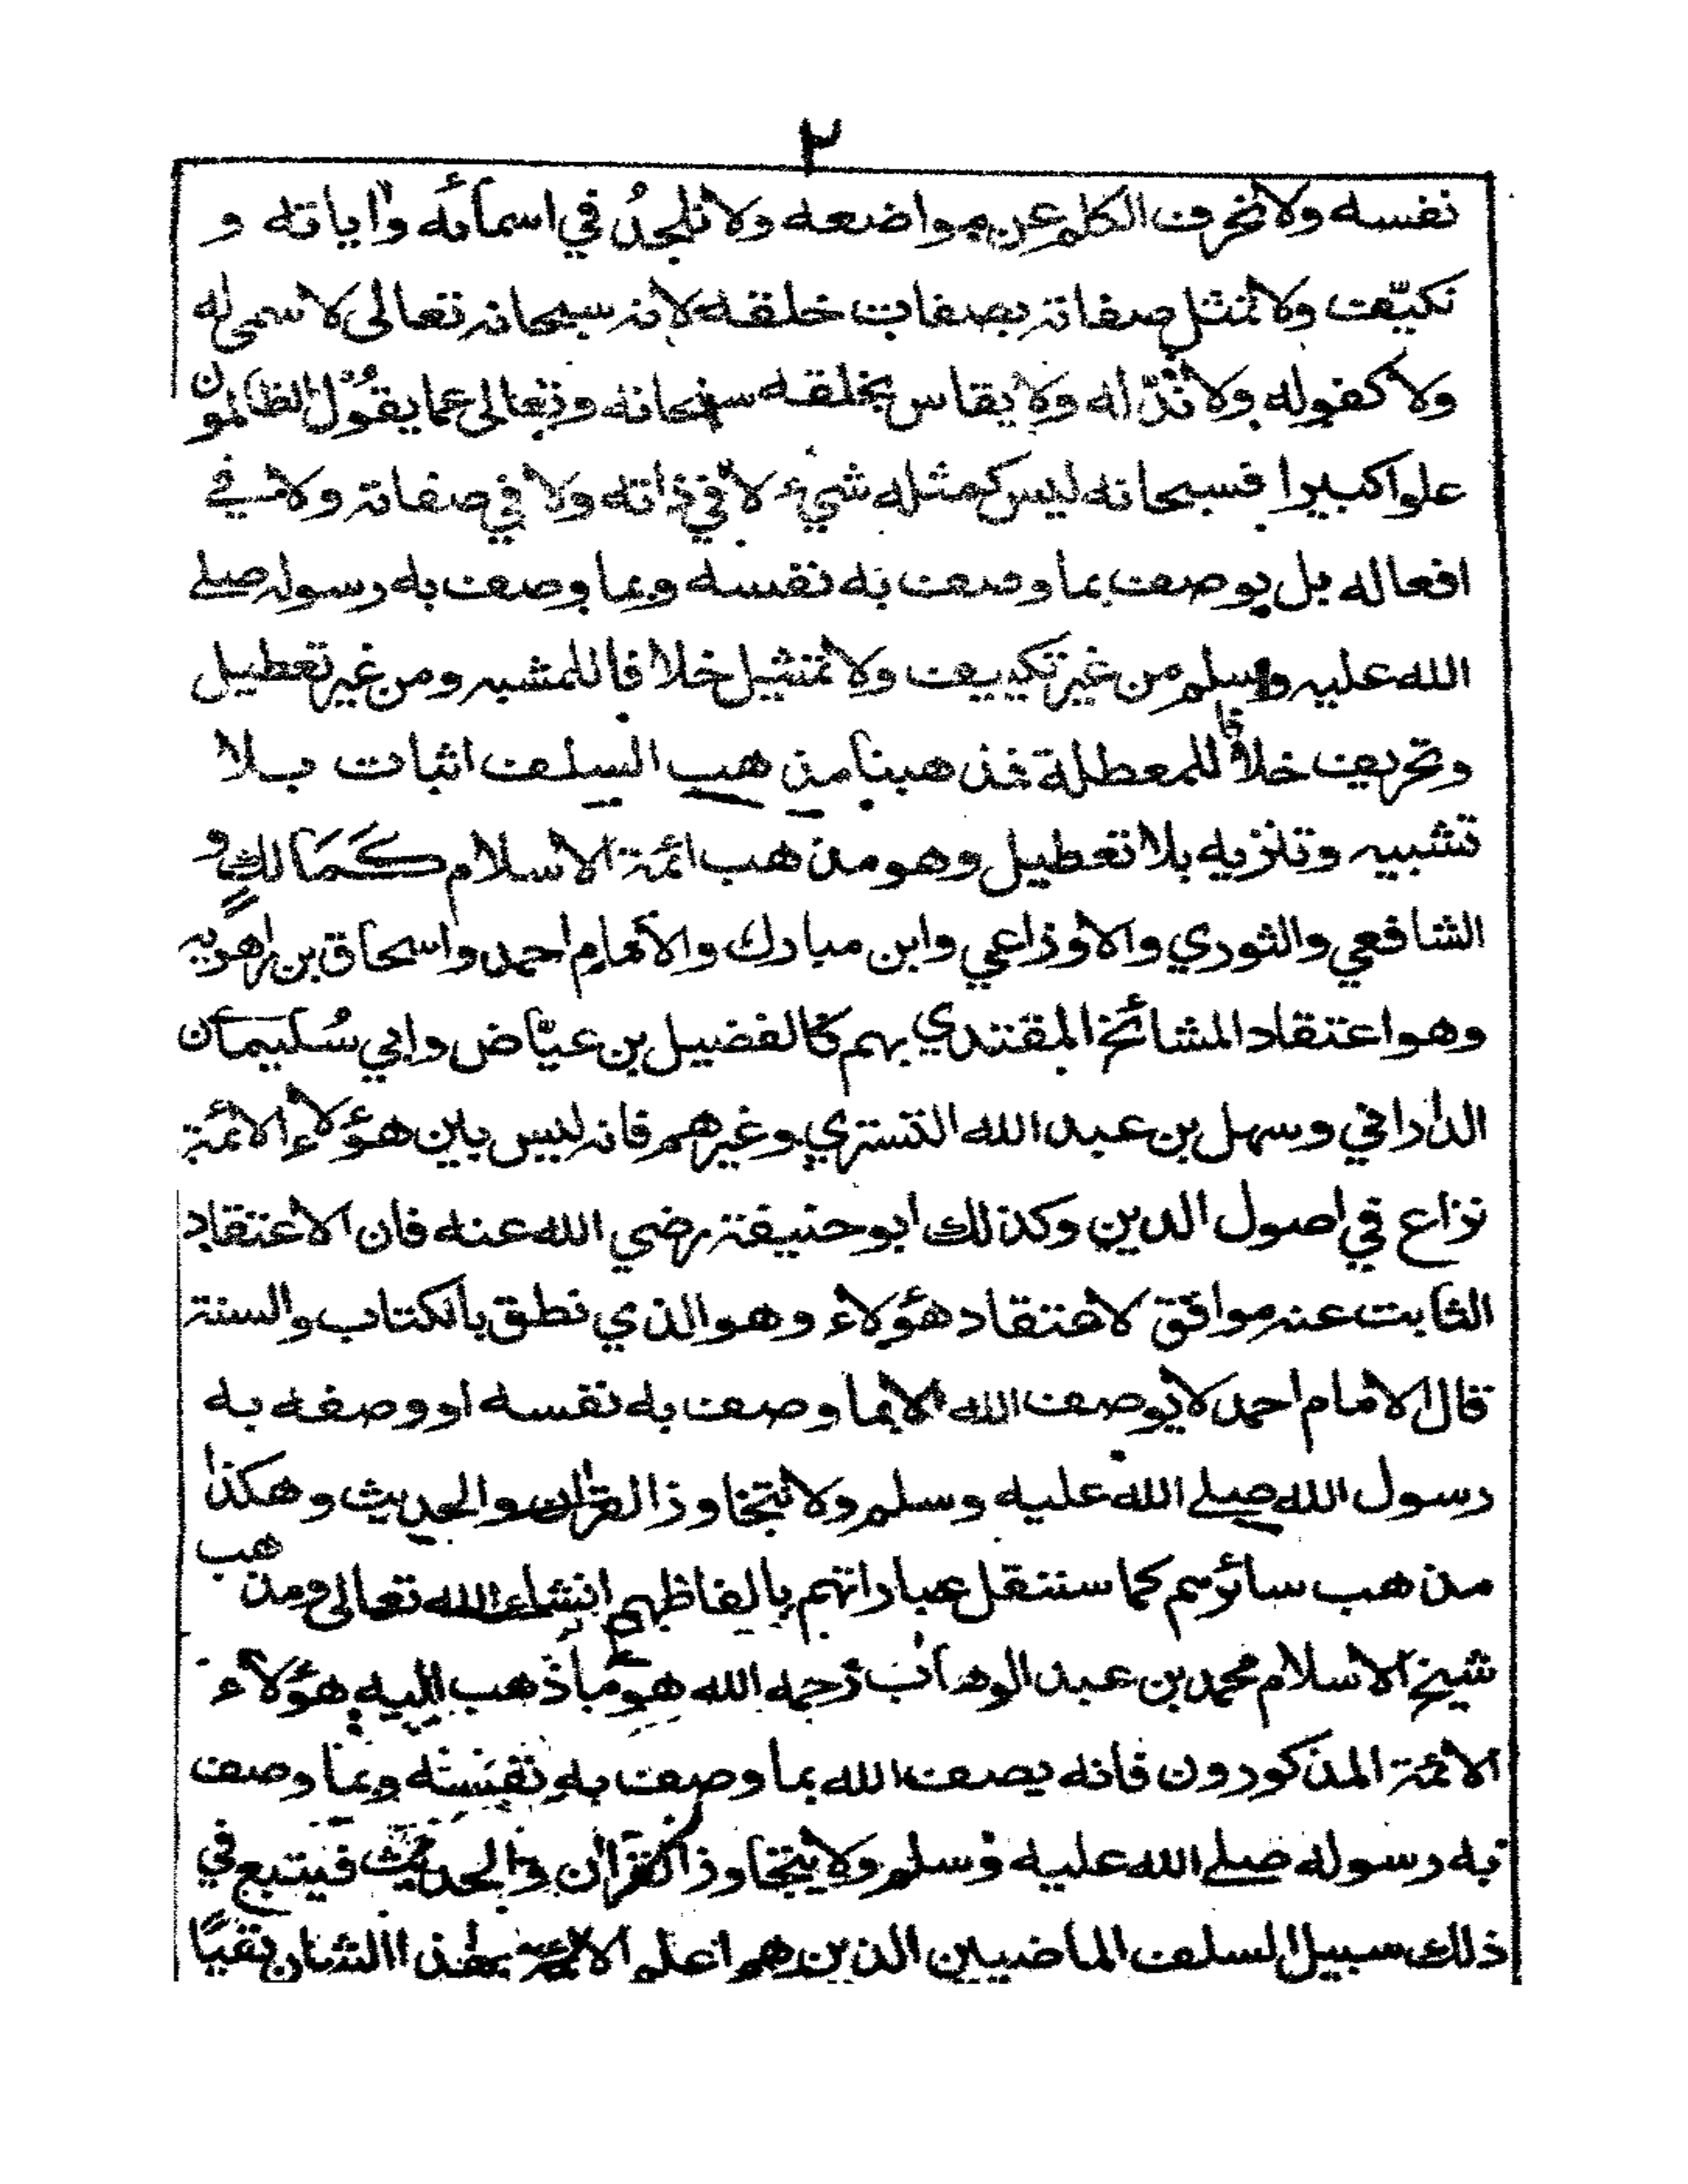 ٢
نفسه ولا نحرف الكلم عن مواضعه ولا نلحدُ في اسمائه واياته و
نكيّف ولا نمثل صفاته بصفات خلقه لانه سبحانه تعالى لا سمى له
ولا كفوله ولا ندّ له ولا يقاس بخلقه سبحانه وتعالى عما يقول الظالمون
علوا كبيرا فسبحانه ليس كمثله شيء لا في ذاته ولا في صفاته ولا في
افعاله بل يوصف بما وصف به نفسه وبما وصف به رسوله صلے
الله عليه وسلم من غير تكييف ولا تمثيل خلافا للمشبه ومن غير تعطيل
وتحريف خلافا للمعطلة فمذهبنا مذهب السلف اثبات بلا
تشبيه وتنزيه بلا تعطيل وهو مذهب ائمة الاسلام كمالك و
الشافعي والثوري والاوزاعي وابن مبارك والامام احمد واسحاق بن راهويه
وهو اعتقاد المشائخ المقتدي بهم كالفضيل بن عيّاض وابي سُليمان
الداراني وسهل بن عبد الله التستري وغيرهم فانه ليس بين هؤلاء الائمة
نزاع في اصول الدين وكذلك ابو حنيفة رضي الله عنه فان الاعتقاد
الثابت عنه موافق لاعتقاد هؤلاء وهو الذي نطق بالكتاب والسنة
قال الامام احمد لا يوصف الله الا بما وصف به نفسه او وصفه به
رسول الله صلے الله عليه وسلم ولا نتجاوز القران والحديث وهكذا
مذهب سائرهم كما سننقل عباراتهم بالفاظهم انشاء الله تعالى ومذهب
شيخ الاسلام محمد بن عبد الوهاب رحمه الله هو ما ذهب اليه هؤلاء
الائمة المذكورون فانه يصف الله بما وصف به نفسه وبما وصف
به رسوله صلے الله عليه وسلم ولا يتجاوز القران والحديث فيتبع في
ذلك سبيل السلف الماضيين الذين هم اعلم الائمة بهذا الشان نفيًا